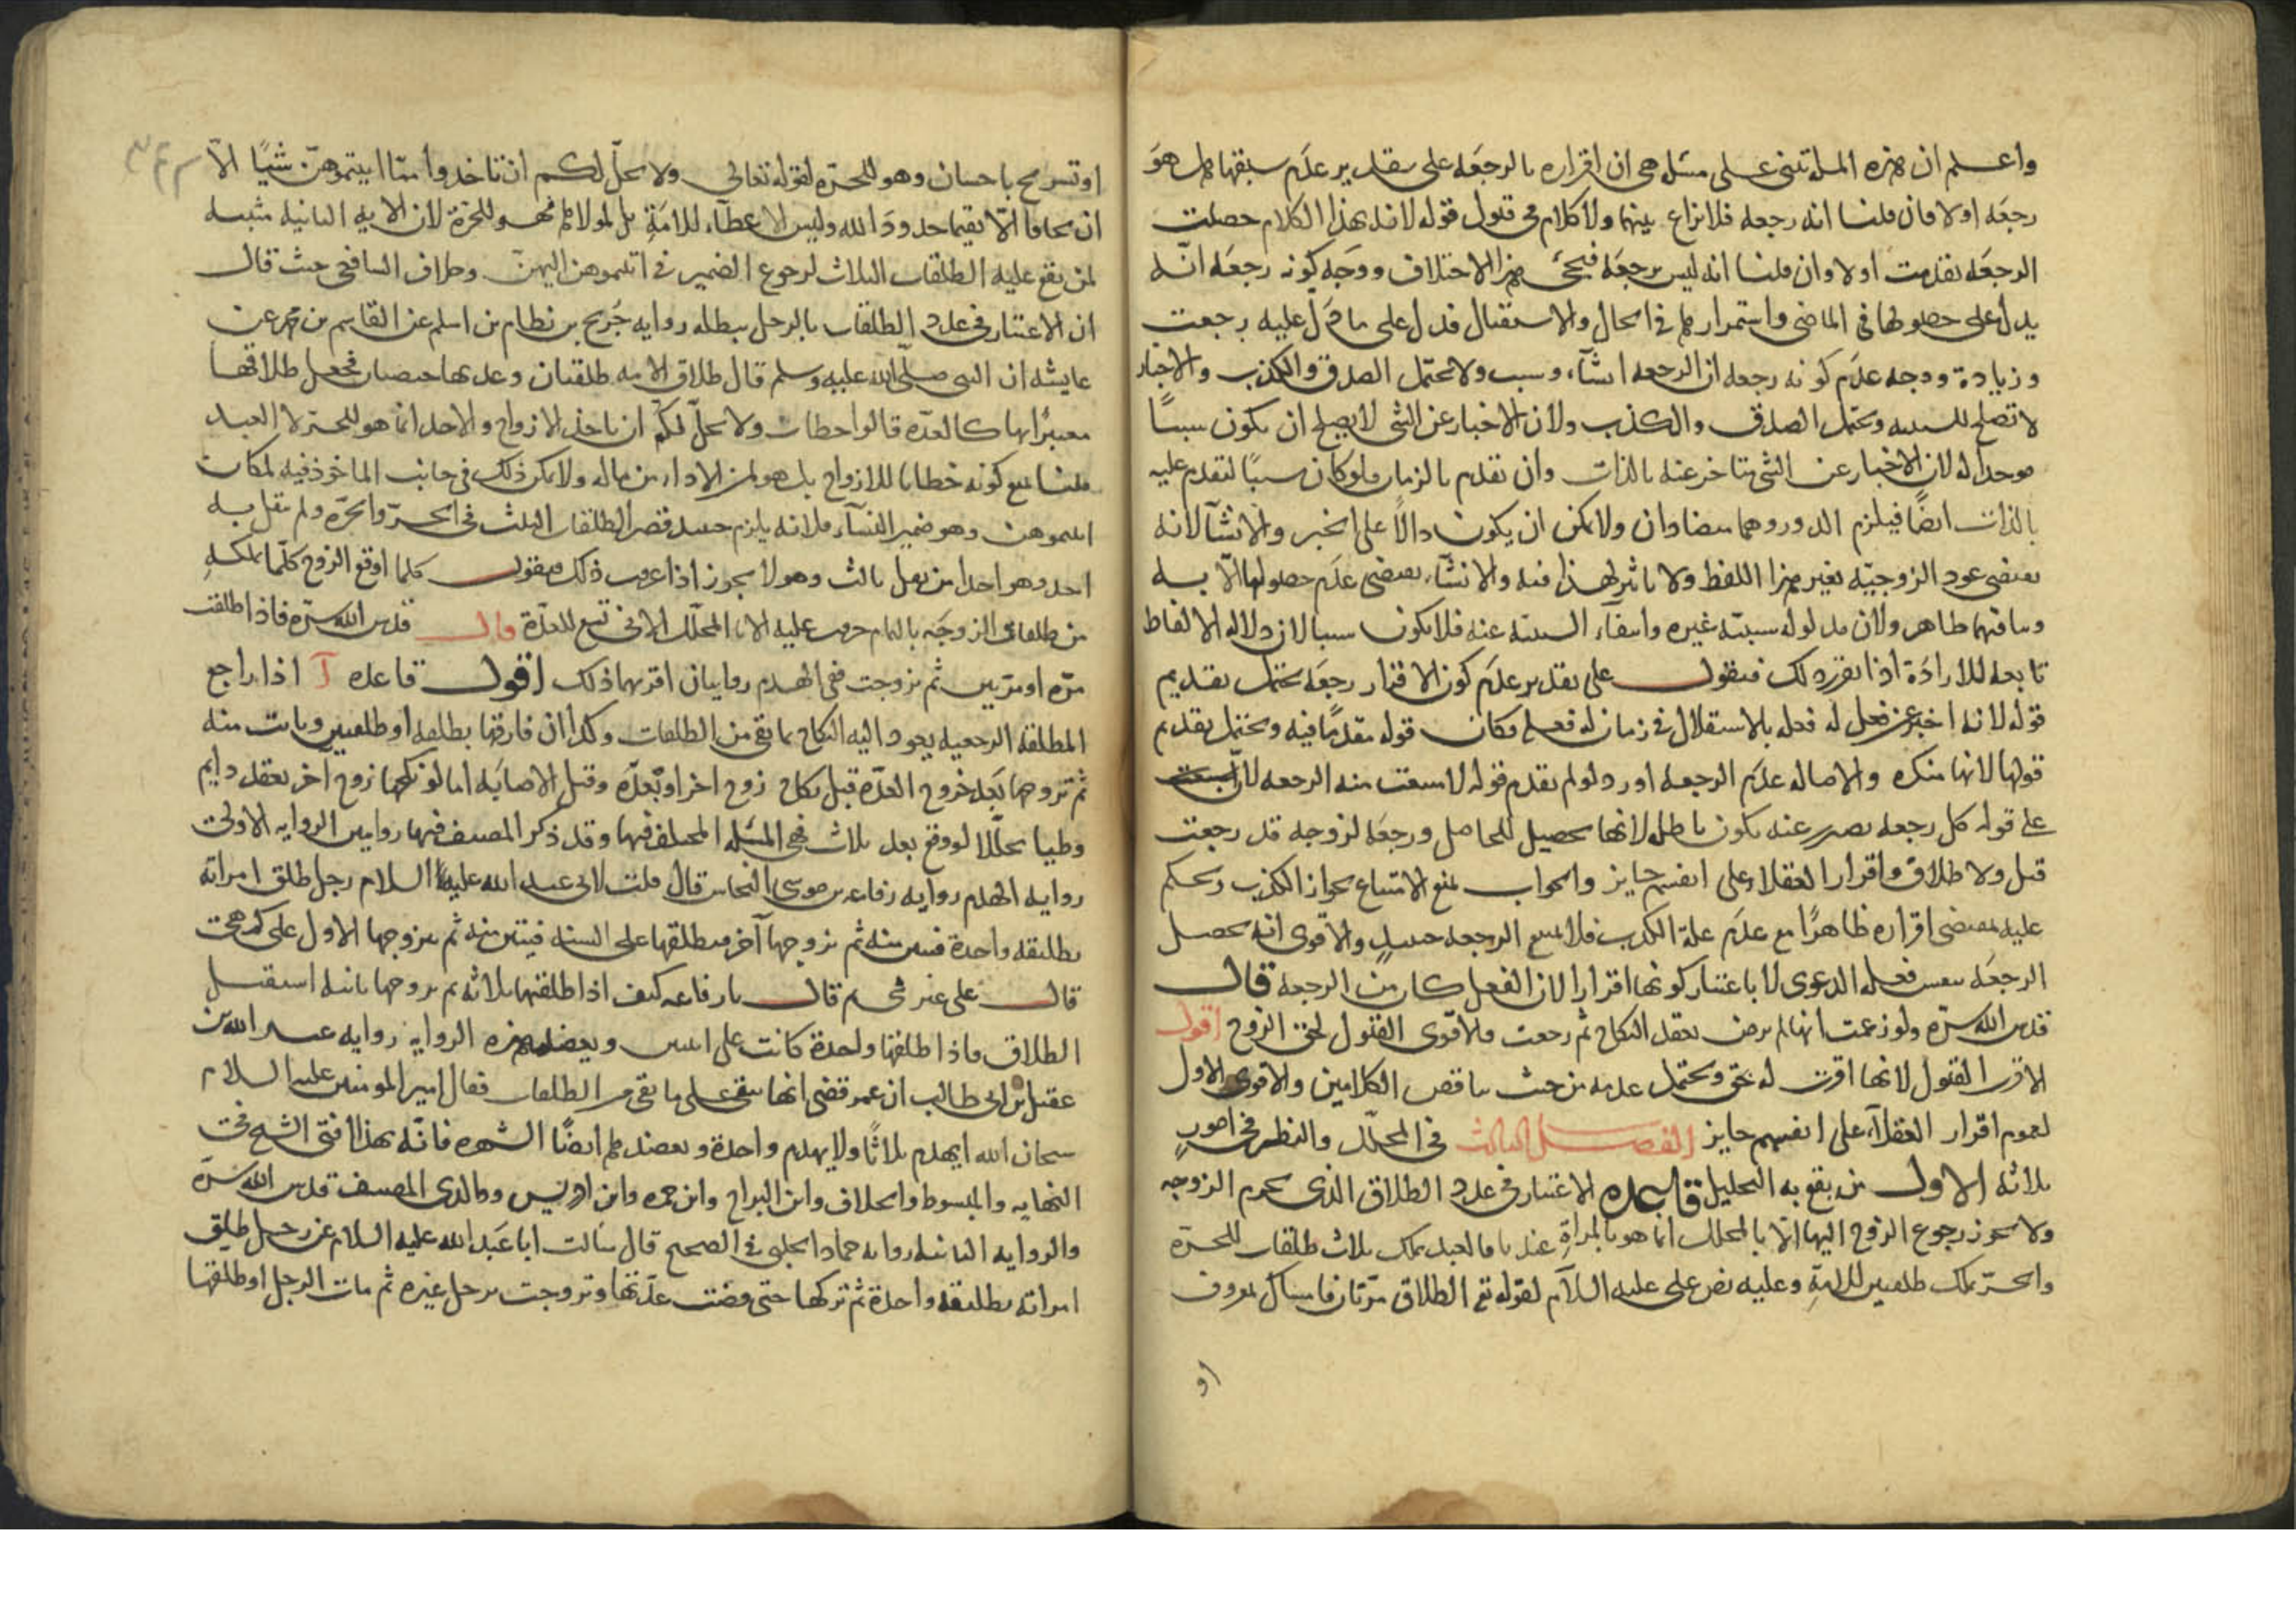 واعلم ان هذه المسئلة تبنى على مسئلة هى ان اقراره بالرجعه على تقدير عدم سبقها هل هو
رجعه اولا فان قلنا انه رجعه فلا نزاع بينهما ولا كلام فى قبول قوله لانه بهذا الكلام حصلت
الرجعه تقدمت اولا وان قلنا انه ليس برجعه فيجئ هذا الاختلاف ووجه كونه رجعه انّه
يدل على حصولها فى الماضى واستمرارها فى الحال والاستقبال فدل على ما دلّ عليه رجعت
وزيادة ووجه عدم كونه رجعه ان الرجعه انشاء وسبب ولا تحتمل الصدق والكذب والاخبار
لا تصلح للسببيه وتحتمل الصدق والكذب ولان الاخبار عن الشى لا يصلح ان يكون سببًا
موجدا له لان الاخبار عن الشى متاخر عنه بالذات وان تقدم بالزمان فلو كان سببًا لتقدم عليه
بالذات ايضًا فيلزم الدور وهما متضادان ولا يمكن ان يكون دالًا على الخبر والانشآ لانه
يقتضى عود الزوجيّه بغير هذا اللفظ ولا تاثير لهذا فيه والانشآء يقتضى عدم حصولها الّا به
وتنافيهما ظاهر ولان مدلوله سببيّه غيره وانتفآء السببيّه عنه فلا يكون سببا لان دلاله الالفاظ
تابعه للارادَة اذا تقرر ذلك فنقول على تقدير عدم كون الاقرار رجعَه يحتمل تقديم
قوله لانه اخبر عن فعل له فعله بالاستقلال فى زمان له فعله فكان قوله مقدمًا فيه ويحتمل تقديم
قولها لانها منكره والاصاله عدم الرجعه اورد لو لم يقدم قوله لامتنعت منه الرجعه لان
على قوله كل رجعه تصدر عنه يكون باطله لانها تحصيل للحاصل ورجعه لزوجه قد رجعت
قبل ولا طلاق واقرار العقلاء على انفسهم جايز والجواب بمنع الامتناع بجواز الكذب ويحكم
عليه بمقتضى اقراره ظاهرًا مع عدم علة الكذب فلا تمتنع الرجعه حينئذٍ والاقوى انه تحصل
الرجعَه بنفس فعله الدعوى لا باعتبار كونها اقرارا لان الفعل كاف من الرجعه قال
قدس الله سرّه ولو زعمت انها لم ترض بعقد النكاح ثم رجعت فالاقوى القبول لحق الزوج اقول
الاقرب القبول لانها اقرت له بحق ويحتمل عدمه من حيث تناقض الكلامين والاقوى الاول
لعموم اقرار العقلآء على انفسهم جايز الفصل الثالث فى المحلّل والنظر فى امورٍ
ثلاثه الاول من يقع به التحليل قاعدة الاعتبار فى عدد الطلاق الذى يحرم الزوجه
ولا يجوز رجوع الزوج اليها الّا بالمحلل انما هو بالمراةِ عندنا فالعبد يملك ثلاث طلقات للحرّة
والحرّ يملك طلقتين للامةِ وعليه نص على عليه السلام لقوله تع الطلاق مرّتان فامساك بمعروف
او
او تسريح باحسان وهو للحرّه لقوله تعالى ولا يحلّ لكم ان تاخذوا ممّا اتيتموهنّ شيًا الّا
ان يخافا الّا يقيما حدودَ الله وليس الاعطآء للامَةِ بل لمولاها فهو للحرّة لان الايه الثانيه مثبته
لمن يقع عليه الطلقات الثلاث لرجوع الضمير فى اتيتموهن اليهنّ وخلاف الشافعى حيث قال
ان الاعتبار فى عدد الطلقات بالرجل يبطله روايه جَريح بن نظام بن اسلم عن القاسم بن محمد عن
عايشه ان النبى صلّى الله عليه وسلم قال طلاق الامه طلقتان وعدتها حيضتان فجعل طلاقها
معتبرًا بها كالعدّه قالوا خطاب ولا يحلّ لكم ان تاخذ الازواج والاخذ انما هو للحرّ لا العبد
قلنا نمنع كونه خطابا للازواج بل هو لمن الاداء من ماله ولا يمكن ذلك فى جانب الماخوذ فيه لمكان
اتيتموهن وهو ضمير النسآء فلانه يلزم حينئذ قصر الطلقات الثلث فى الحرّ والحرّه ولم يقل به
احد وهو احداث من يقول ثالث وهو لا يجوز اذا عرفت ذلك فنقول كلما اوقع الزوج كلّما يملكهِ
من طلقات الزوجَه بالتمام حرمت عليه الا بالمحلّل الا فى تسع للعدّة قال قدس الله سرّه فاذا طلقت
مرّه او مرّتين ثم تزوجت ففى الهدم روايتان اقربهما ذلك اقول قاعده آ اذا راجع
المطلقه الرجعيه يعود اليه النكاح بما بقى من الطلقات وكذا ان فارقها بطلقه او طلقتين وبانت منه
ثم تزوجها بَعد خروج العدّه قبل نكاح زوج اخر او بَعده وقبل الاصابَه اما لو نكحها زوج اخر بعقد دايم
وطيا محلّلا لو وقع بعد ثلاث فهى المسئله المختلف فيها وقد ذكر المصنف فيها روايتين الروايه الاولى
روايه الهدم روايه رفاعه بن موسى النخاس قال قلت لابى عبد الله عليه السلام رجل طلق امراته
تطليقه واحدة فتبين منه ثم تزوجها آخر فيطلقها على السنه فتبين منه ثم يتزوجها الاول على كم هى
قال على غير شى ثم قال يا رفاعه كيف اذا طلقها ثلاثه ثم تزوجها ثانيه استقبل
الطلاق فاذا طلقها واحدة كانت على اثنتين ويعضد هذه الروايه روايه عبد الله بن
عقيل بن ابى طالب ان عمر قضى انها تبقى على ما بقى من الطلقات فقال امير المومنين عليه السلام
سبحان الله ايهدم ثلاثًا ولا يهدم واحدة ويعضدها ايضًا الشهره فانّه بهذا افتى الشيخ فى
النهايه والمبسوط والخلاف وابن البراج وابن حمزه وابن ادريس ووالدى المصنف قدس الله سرّه
والروايه الثانيه روايه حماد الحلبى فى الصحيح قال سَالت ابا عَبد الله عليه السلام عن رجل طلق
امراته تطليقه واحدة ثم تركها حتى مضت عدّتها وتزوجت برجل غيره ثم مات الرجل او طلقها